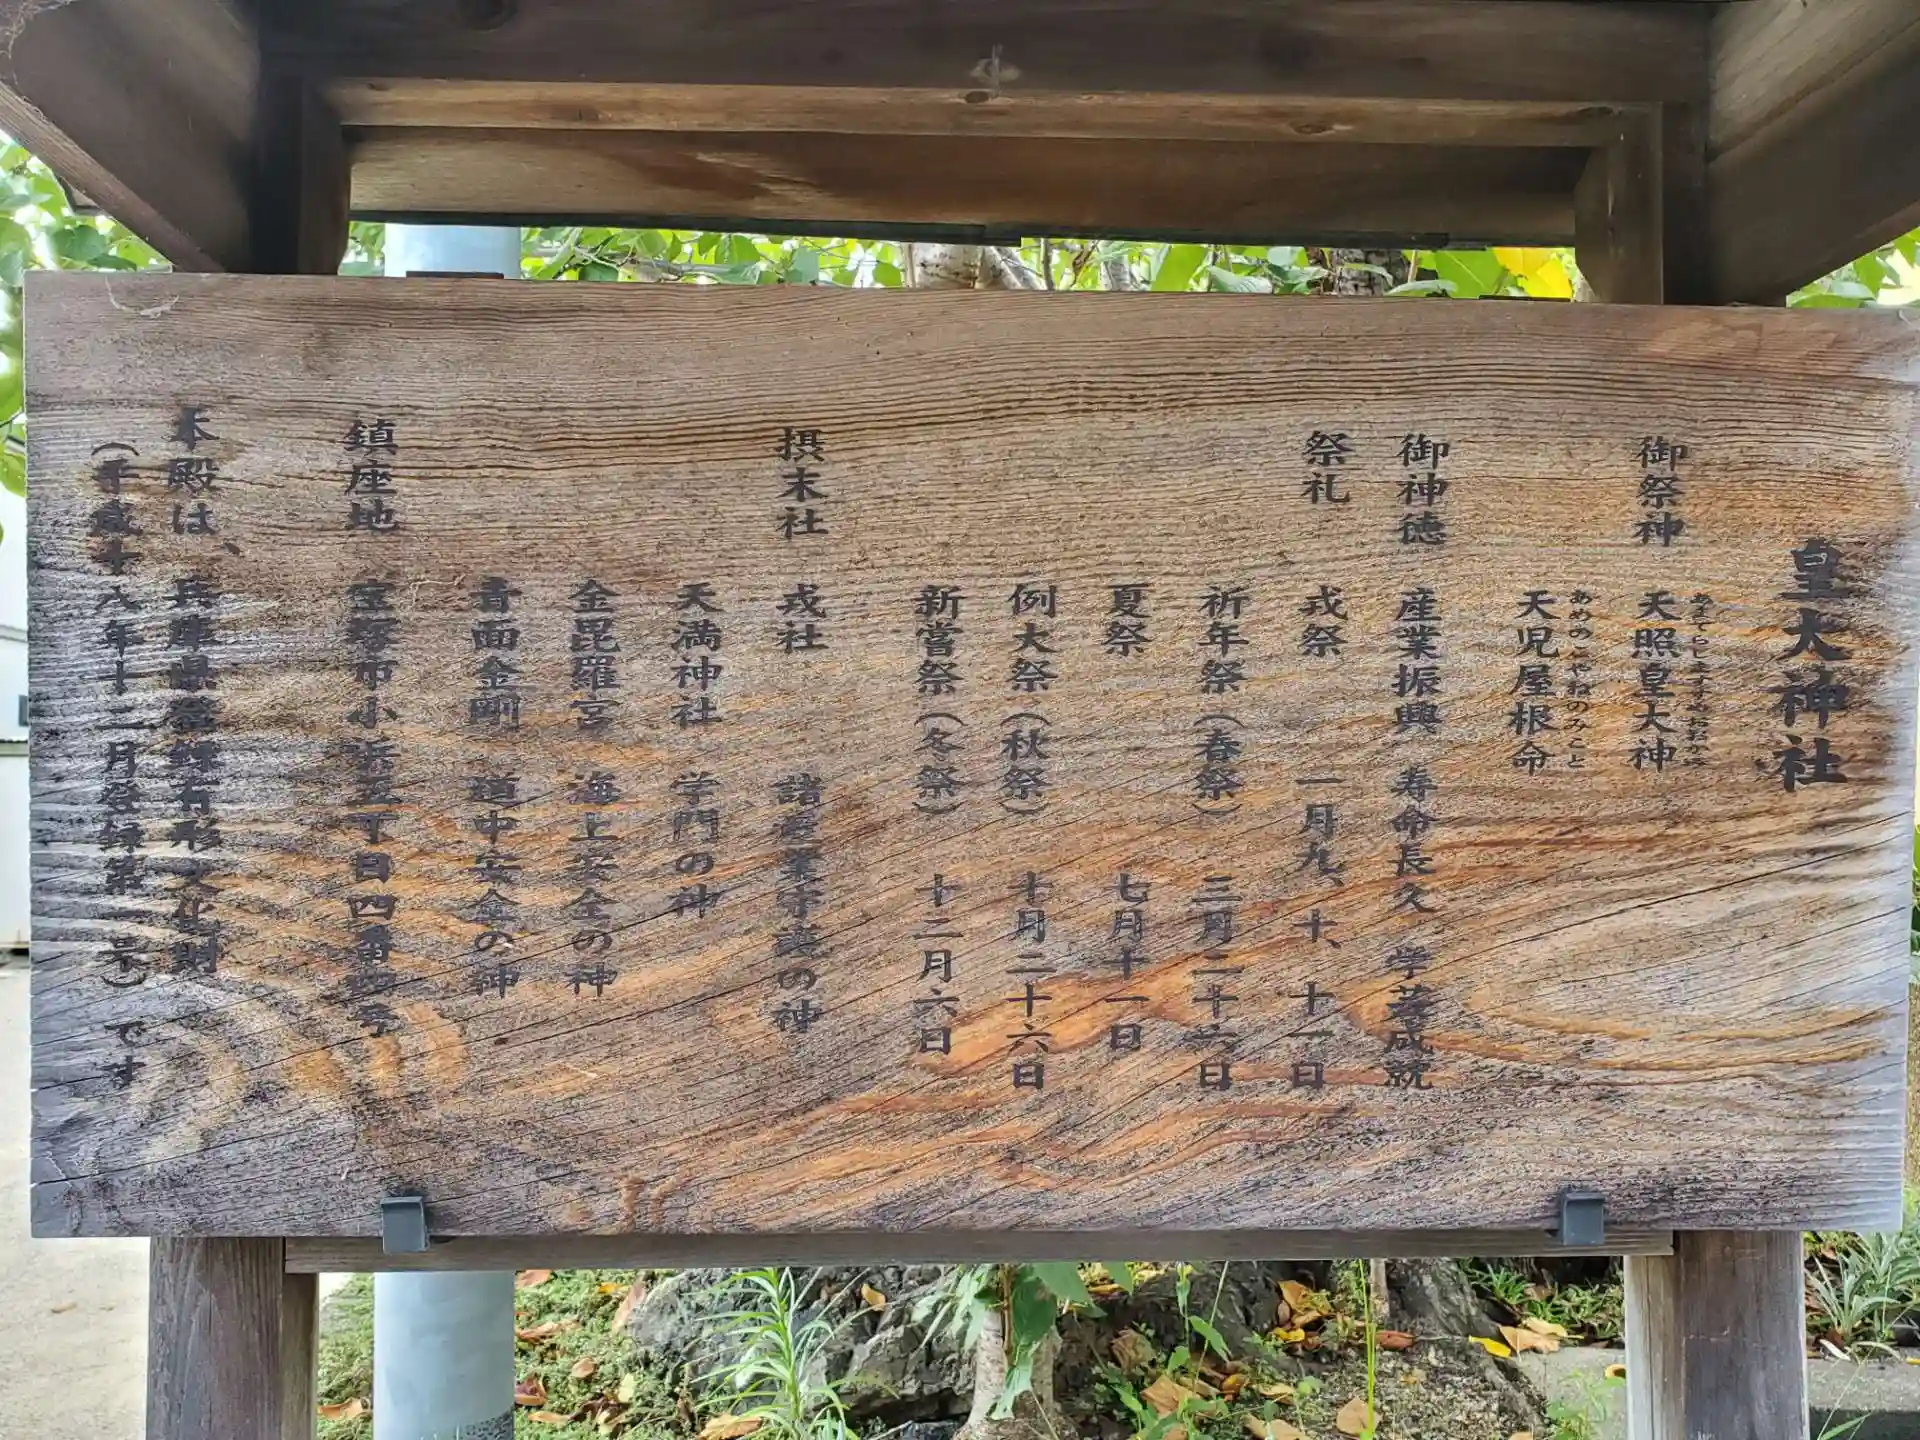 皇大神社
御祭神 天照皇大神
あまてらしますすめおおかみ
天児屋根命
あめのこやねのみこと
御神徳 産業振興 寿命長久 学芸成就
祭礼 戎祭 一月九、十、十一日
祈年祭(春祭) 三月二十六日
夏祭 七月十一日
例大祭(秋祭) 十月二十六日
新嘗祭(冬祭) 十二月六日
摂末社 戎社 諸産業守護の神
天満神社 学門の神
金毘羅宮 海上安全の神
青面金剛 道中安全の神
鎮座地 宝塚市小浜五丁目四番四号
本殿は、兵庫県登録有形文化財
(平成十八年十二月登録第一号)です